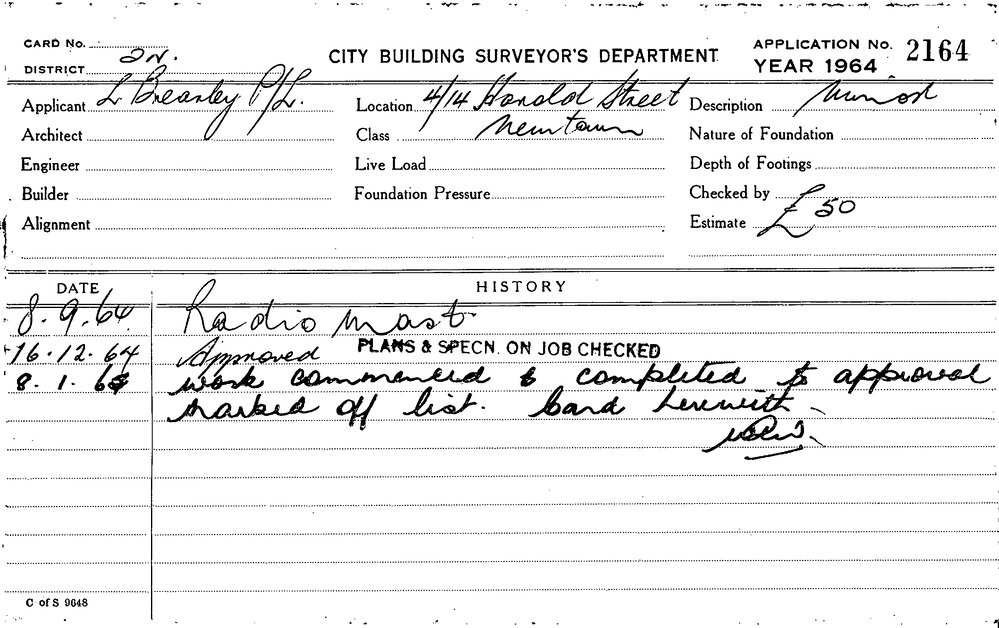 CARD No.
DISTRICT 2N.
CITY BUILDING SURVEYOR'S DEPARTMENT
APPLICATION No. 2164
YEAR 1964
Applicant L Brearley P/L.
Location 4/14 Harold Street
Description Minor
Architect
Class Newtown
Nature of Foundation
Engineer
Live Load
Depth of Footings
Builder
Foundation Pressure
Checked by
Alignment
Estimate £50
DATE
HISTORY
8.9.64 Radio mast
16.12.64 Approved PLANS & SPECN. ON JOB CHECKED
8.1.65 work commenced & completed to approval
marked off list. Card herewith
C of S 9648